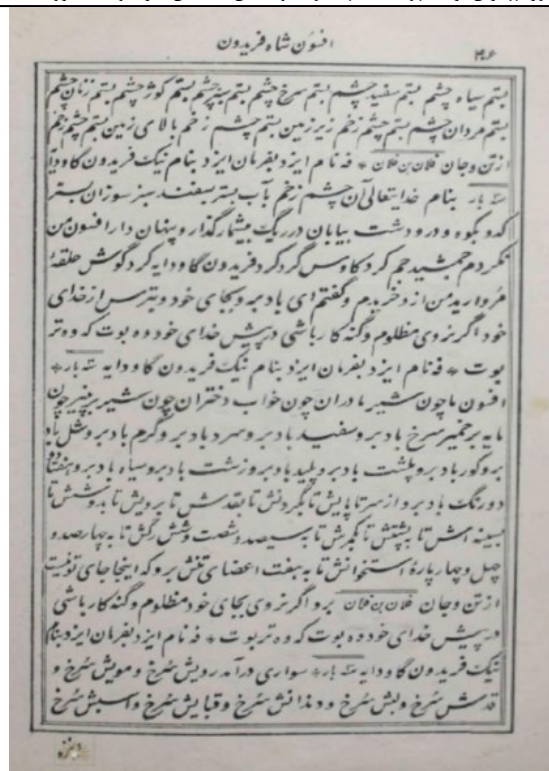 افسون شاه فریدون
۳۰۶
بستم سیاه چشم بستم سفید چشم بستم سرخ چشم بستم سبز چشم بستم کوژ چشم بستم زنان چشم
بستم مردان چشم بستم چشم زخم زیر زمین بستم چشم زخم بالای زمین بستم چشم زخم
از تن و جان فلان بن فلان ٭ فه نام ایزد بفرمان ایزد بنام نیک فریدون گاودایه
سه بار بنام خدایتعالی آن چشم زخم بآب بستر بسفند بستر سوزان بستر
که و بکوه و در و دشت بیابان در ریگ بیشمار گذار و پنهان دار افسون من
نکردم جمشید جم کرد کاوس گرد کرد فریدون گاودایه کرد گوش حلقهٔ
مروارید من از و خریدم و گفتم ای باد مبه و بجای خود و بترس از خدای
خود اگر نروی مظلوم و گنه کار باشی در پیش خدای خود وه بوت که وه تر
بوت ٭ فه نام ایزد بفرمان ایزد بنام نیک فریدون گاودایه سه بار ٭
افسون ما چون شیر مادران چون خواب دختران چون شیر بر پنیر چون
مایه بر خمیر سرخ باد برو سفید باد برو سرد باد برو گرم باد برو شل باد
برو کور باد برو پلشت باد برو پلید باد برو زشت باد برو سیاه باد برو هفتاد و دو
دو رنگ باد برو از سر تا پایش تا بگردنش تا بقدش تا برویش تا بدوشش تا
بسینه اش تا بپشتش تا کمرش تا بسیصد و شصت و شش رگش تا بچهارصد و
چهل و چهار پارهٔ استخوانش تا به هفت اعضای تنش برو که اینجا جای تو نیست
از تن و جان فلان بن فلان برو اگر نروی بجای خود مظلوم و گنه کار باشی
در پیش خدای خود وه بوت که وه تر بوت ٭ فه نام ایزد بفرمان ایزد بنام
نیک فریدون گاودایه سه بار ٭ سواری در آمد رویش سرخ و مویش سرخ و
قدش سرخ و لبش سرخ و دندانش سرخ و قبایش سرخ و اسبش سرخ